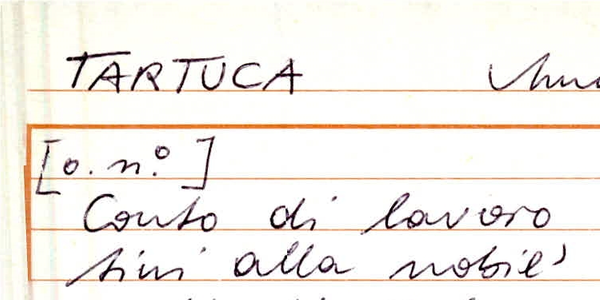 TARTUCA
[o. n.º]
Conto di lavoro
tini alla nobil'